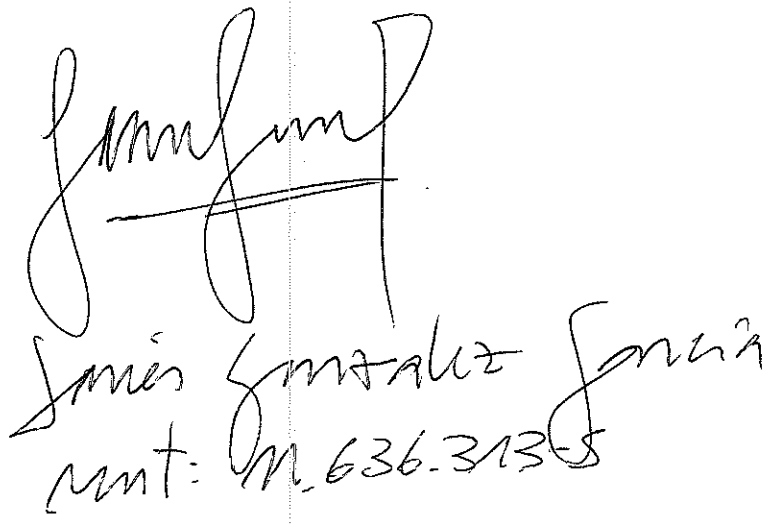 Javier González García
rut: 11.636.313-5